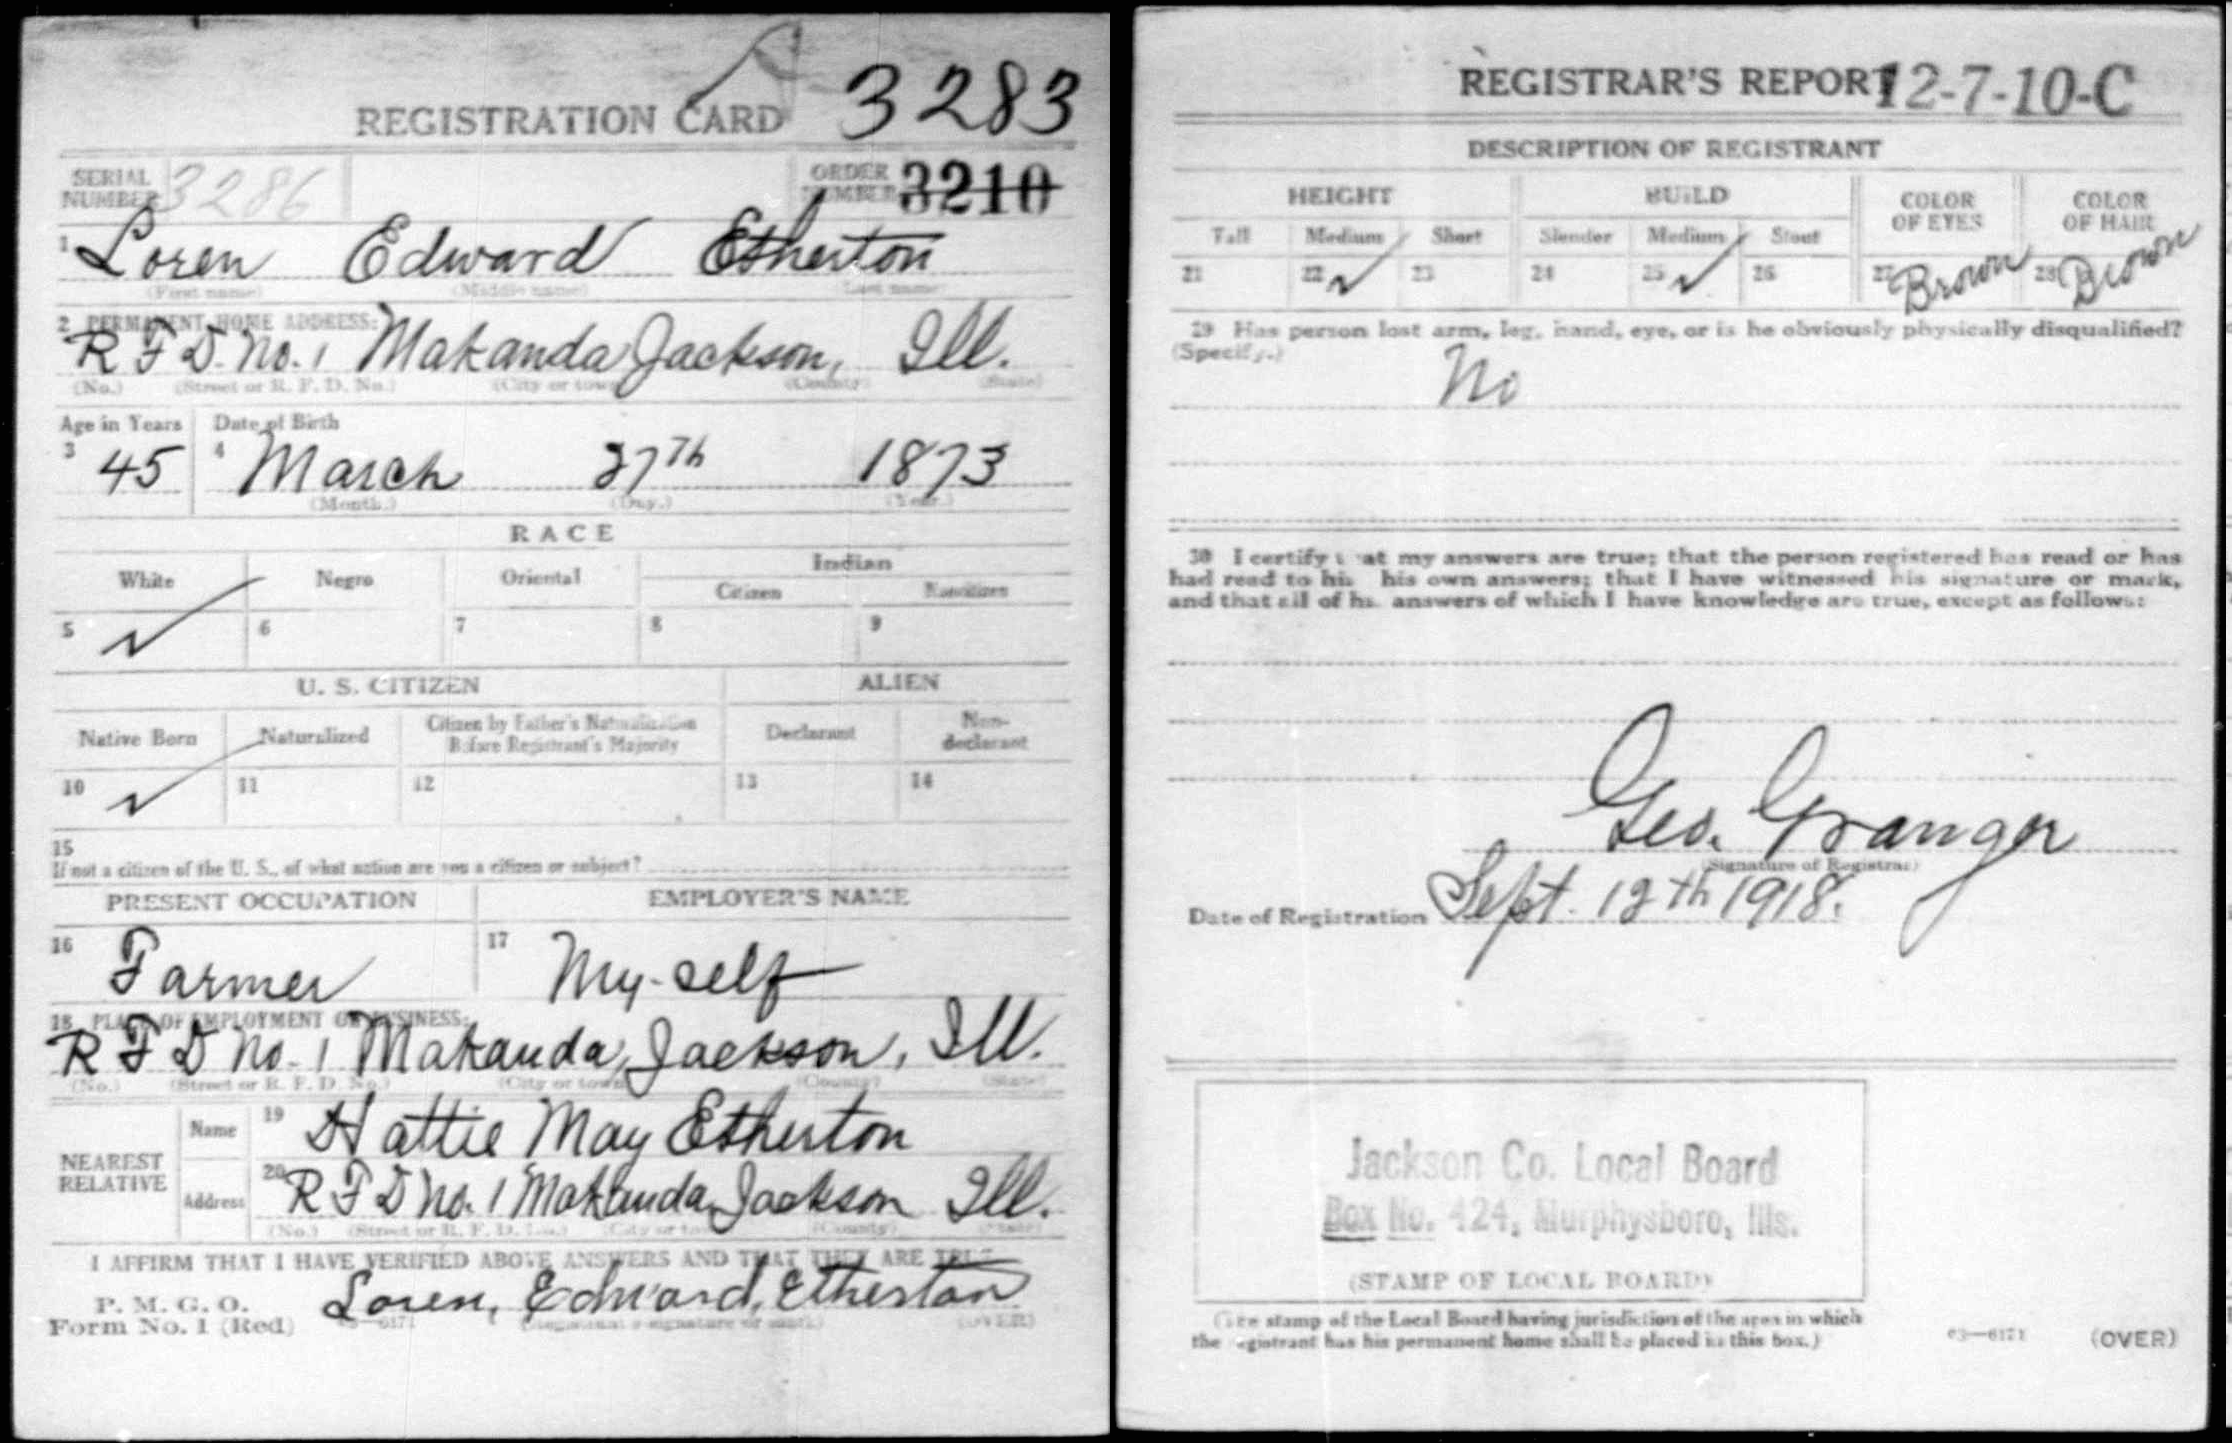 REGISTRATION CARD 3283
SERIAL NUMBER 3286 ORDER NUMBER 3210
1 Loren Edward Etherton
(First name) (Middle name) (Last name)
2 PERMANENT HOME ADDRESS:
R F D. No. 1 Makanda Jackson, Ill.
(No.) (Street or R. F. D. No.) (City or town) (County) (State)
Age in Years Date of Birth
3 45 4 March 27th 1873
(Month.) (Day.) (Year.)
RACE
White Negro Oriental Indian
Citizen Noncitizen
5 6 7 8 9
U. S. CITIZEN ALIEN
Native Born Naturalized Citizen by Father's Naturalization Before Registrant's Majority Declarant Non-declarant
10 11 12 13 14
15
If not a citizen of the U. S., of what nation are you a citizen or subject?
PRESENT OCCUPATION EMPLOYER'S NAME
16 Farmer 17 My-self
18 PLACE OF EMPLOYMENT OR BUSINESS:
R F D No. 1 Makanda, Jackson, Ill.
(No.) (Street or R. F. D. No.) (City or town) (County) (State)
NEAREST RELATIVE
Name 19 Hattie May Etherton
Address 20 R F D No. 1 Makanda, Jackson Ill.
(No.) (Street or R. F. D. No.) (City or town) (County) (State)
I AFFIRM THAT I HAVE VERIFIED ABOVE ANSWERS AND THAT THEY ARE TRUE
P. M. G. O.
Form No. 1 (Red) Loren, Edward, Etherton
03—6171 (Registrant's signature or mark) (OVER)
REGISTRAR'S REPORT 12-7-10-C
DESCRIPTION OF REGISTRANT
HEIGHT BUILD COLOR OF EYES COLOR OF HAIR
Tall Medium Short Slender Medium Stout
21 22 23 24 25 26 27 Brown 28 Brown
29 Has person lost arm, leg, hand, eye, or is he obviously physically disqualified?
(Specify.)
No
30 I certify that my answers are true; that the person registered has read or has
had read to him his own answers; that I have witnessed his signature or mark,
and that all of his answers of which I have knowledge are true, except as follows:
Geo. Granger
(Signature of Registrar)
Date of Registration Sept. 12th 1918.
Jackson Co. Local Board
Box No. 424, Murphysboro, Ills.
(STAMP OF LOCAL BOARD)
(The stamp of the Local Board having jurisdiction of the area in which
the registrant has his permanent home shall be placed in this box.)
03—6171 (OVER)